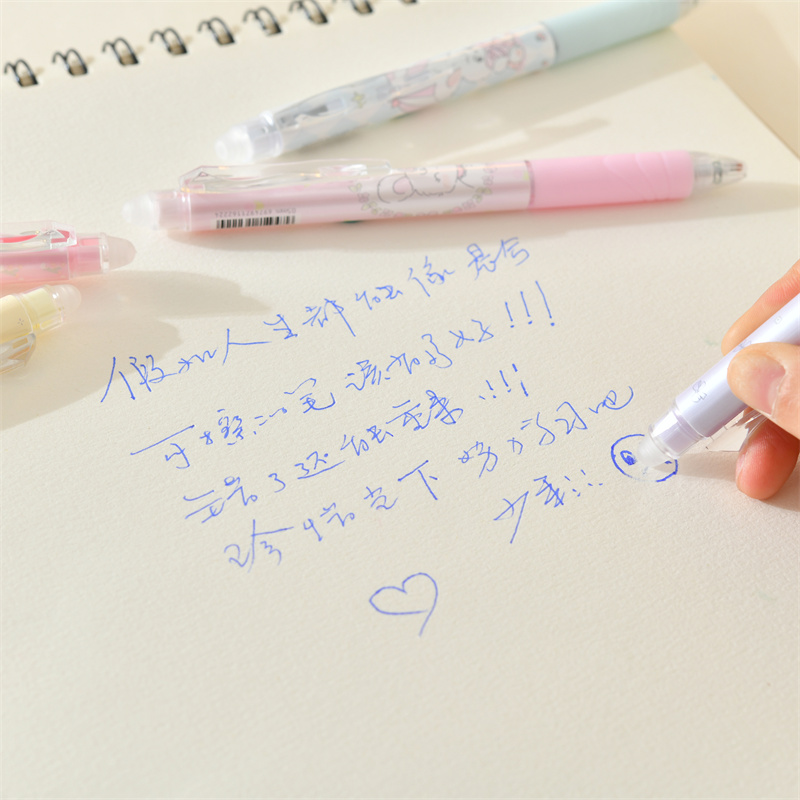 假如人生都能像是与
可擦的笔该有多好!!!
写错了还能重来!!!
珍惜当下 努力学习吧
少年!!!